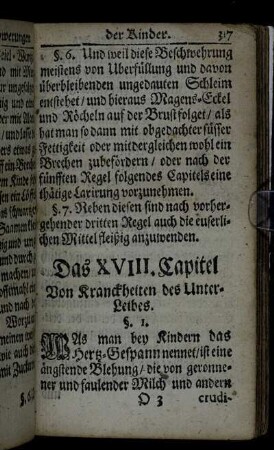 der Kinder. 317
§. 6. Und weil diese Beschwehrung
meistens von Uberfüllung und davon
überbleibenden ungedauten Schleim
entstehet / und hieraus Magens-Eckel
und Röcheln auf der Brust folget / als
hat man so dann mit obgedachter süsser
Fettigkeit oder mit dergleichen wohl ein
Brechen zubefördern / oder nach der
fünfften Regel folgendes Capitels eine
thätige Laxirung vorzunehmen.
§. 7. Neben diesen sind nach vorher-
gehender dritten Regel auch die euserli-
chen Mittel fleißig anzuwenden.
Das XVIII. Capitel
Von Kranckheiten des Unter-
Leibes.
§. 1.
WAs man bey Kindern das
Hertz-Gespann nennet / ist eine
ängstende Blehung / die von geronne-
ner und faulender Milch und andern
O 3 crudi-